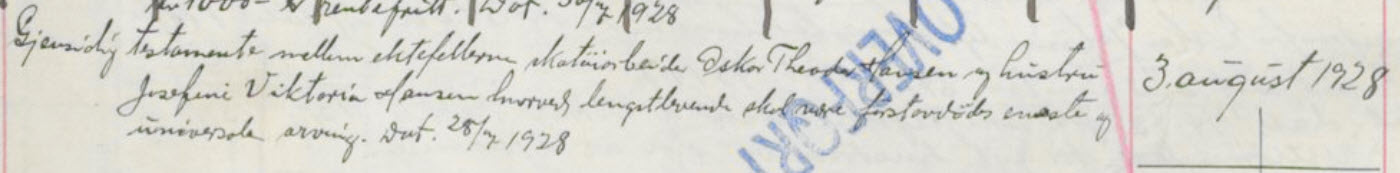 kr 1000 - rentefritt. Dat. 30/7 1928
Gjensidig testamente mellem ektefellerne Oskar Theodor Hansen og hustru
3. august 1928
Josefine Viktoria Hansen hvorved lengstlevende skal være förstavdödes eneste og
universale arving. Dat. 28/7 1928
OVERFÖRT